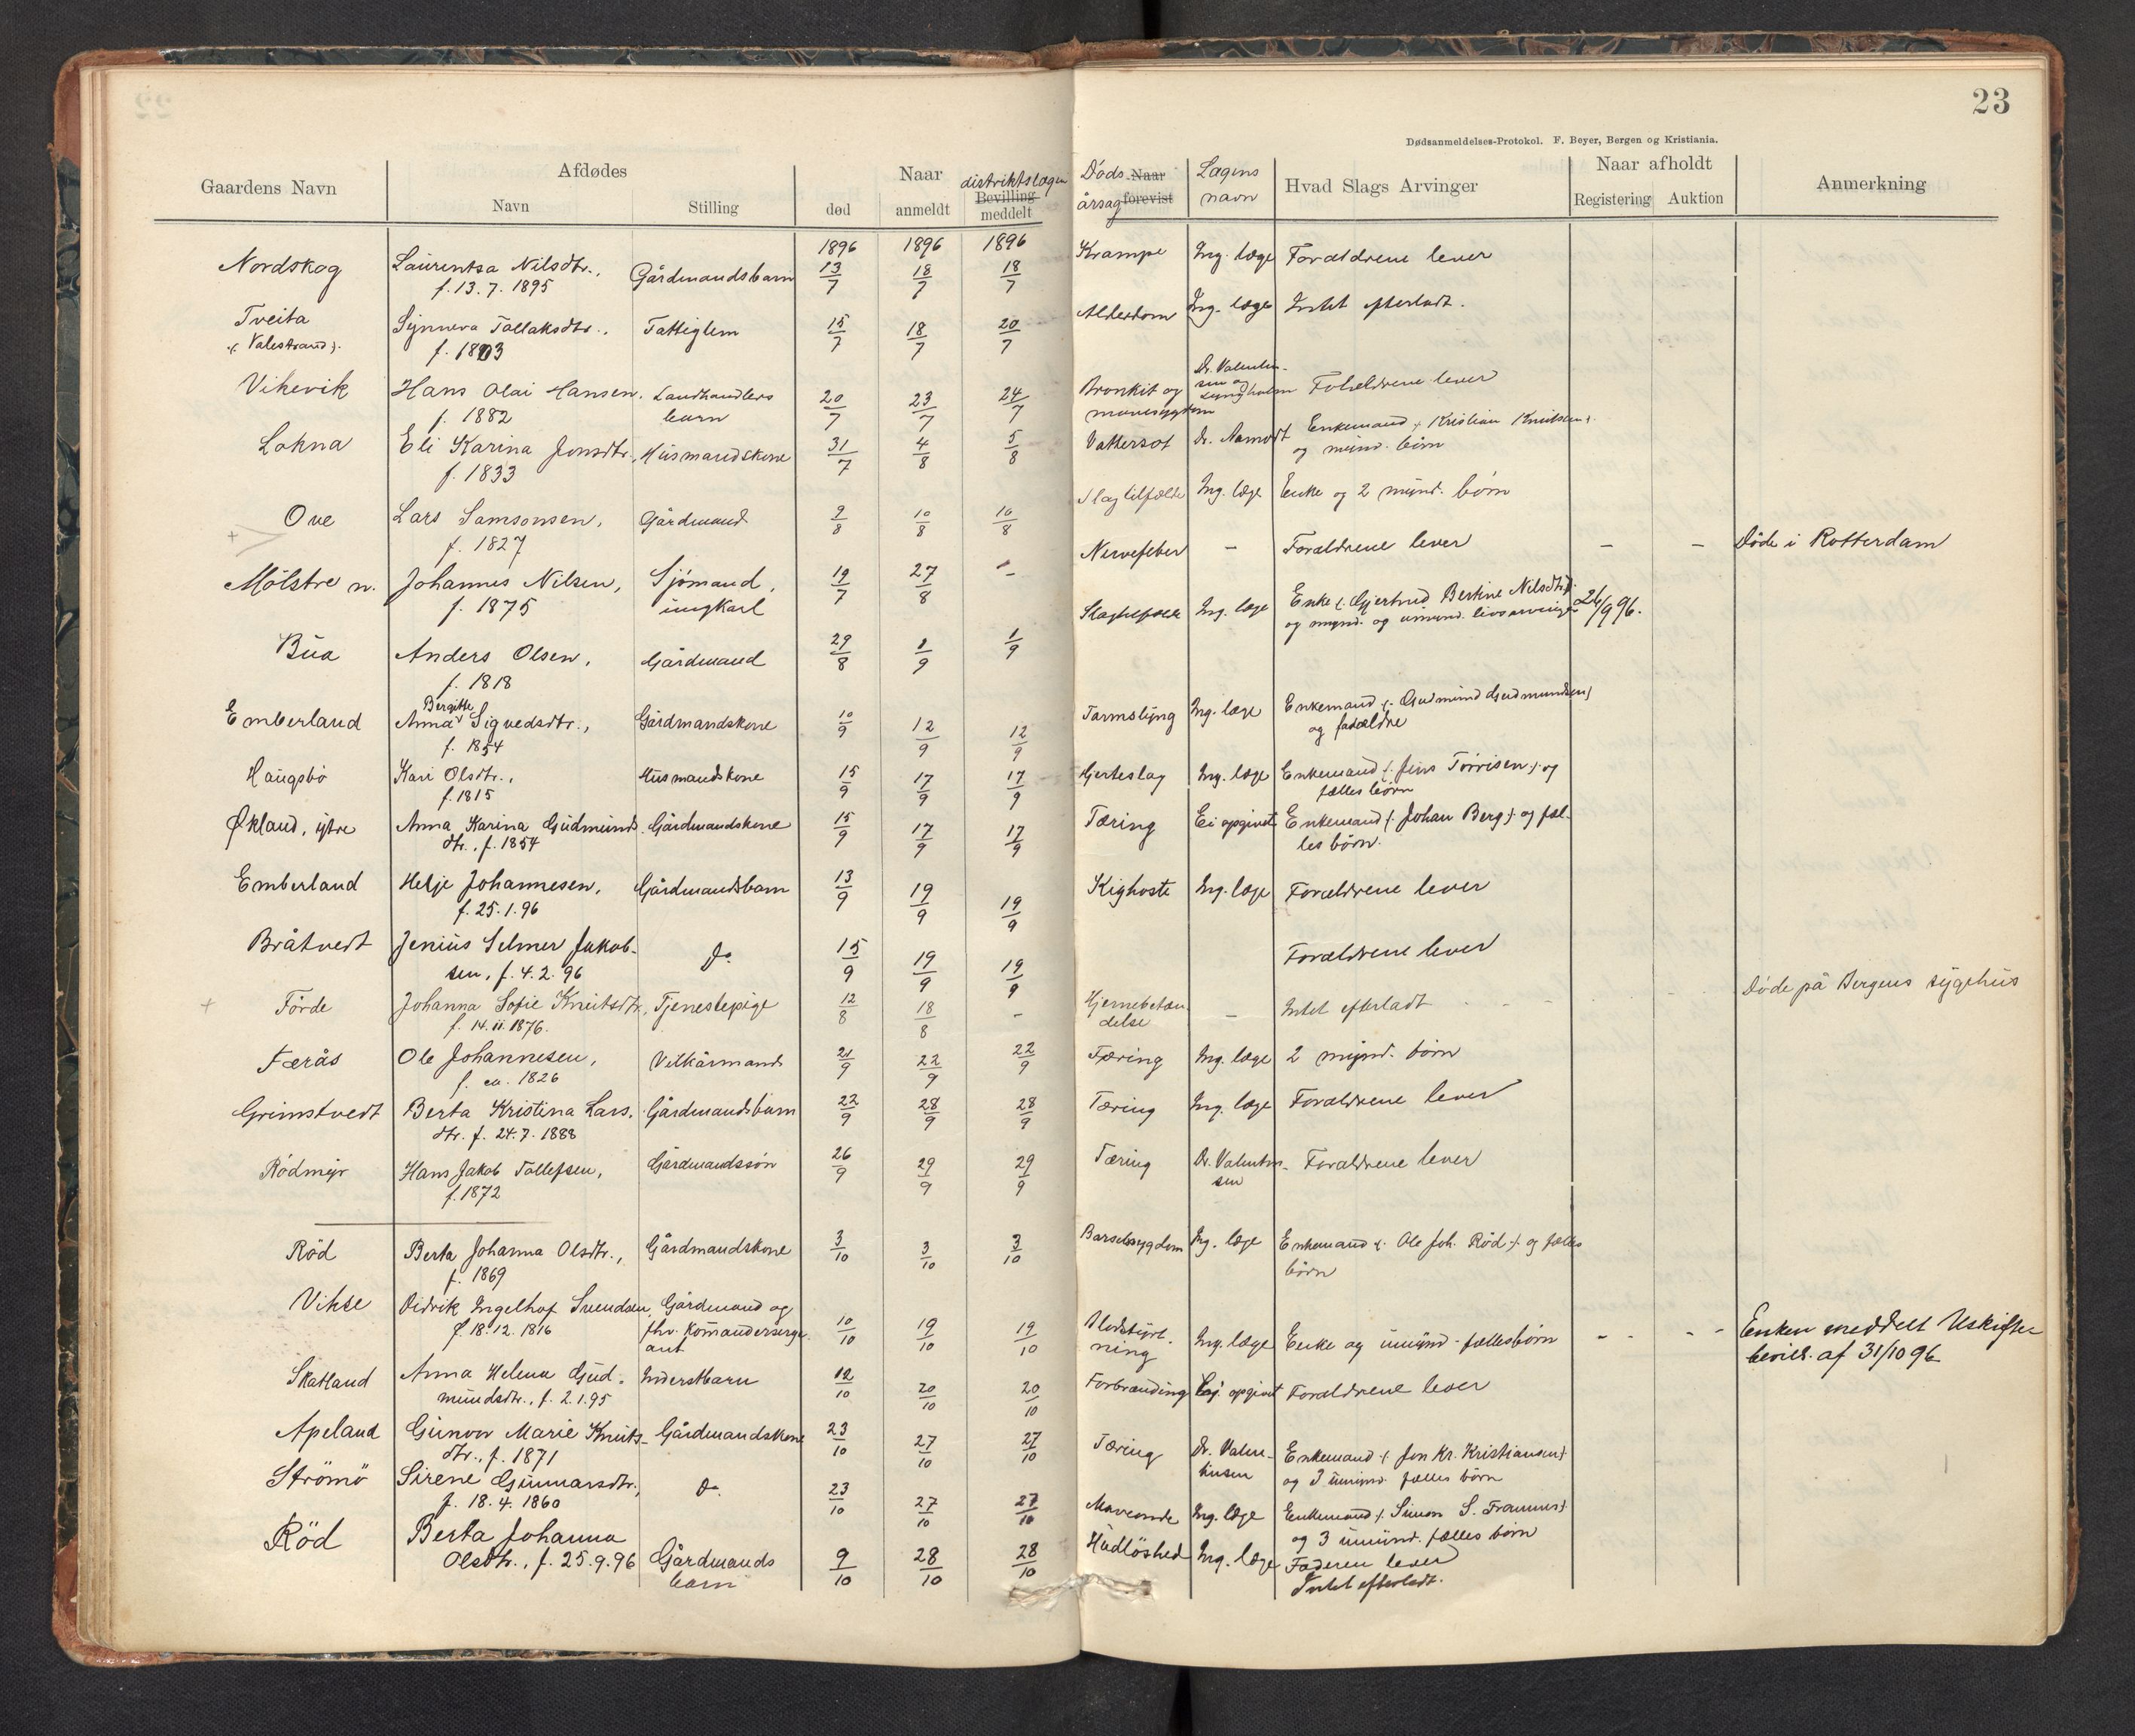 23
Dødsanmeldelses-Protokol. F. Beyer, Bergen og Kristiania.
Gaardens Navn
Afdødes
Navn
Stilling
Naar
død
anmeldt
distriktslægen
Bevilling
meddelt
Døds Naar
årsag forevist
Lægens
navn
Hvad Slags Arvinger
Naar afholdt
Registering
Auktion
Anmerkning
1896 1896 1896
Nordskog Laurentsa Nilsdtr., Gårdmandsbarn 13/7 18/7 18/7 Krampe Ing. læge Forældrene lever
f. 13.7.1895
Tveita Synneva Tollaksdtr., Fattiglem 15/7 18/7 20/7 Alderdom Ing. læge Intet efterladt.
(: Valestrand :) f. 1803
Vikevik Hans Olai Hansen, Landhandlers 20/7 23/7 24/7 Bronkit og Dr. Valentin- Forældrene lever
f. 1882 barn mavesygdom sen og Lyngholm
Lokna Eli Karina Jonsdtr., Husmandskone 31/7 4/8 5/8 Vattersot Dr. Aamodt Enkemand (: Kristian Knutsen :)
f. 1833 og mynd. børn
Ove Lars Samsonsen, Gårdmand 9/8 10/8 10/8 Slagtilfælde Ing. læge Enke og 2 mynd. børn
f. 1827
Mölstre n. Johannes Nilsen, Sjömand, 19/7 27/8 - Nervefeber - Forældrene lever - - Döde i Rotterdam
f. 1875 ungkarl
Bua Anders Olsen, Gårdmand 29/8 1/9 1/9 Slagtilfælde Ing. læge Enke (: Gjertrud Bertine Nilsdtr. :) 26/9 96.
f. 1818 og mynd. og umynd. livsarvinger
Emberland Anna Bergitte Sigvedsdtr., Gårdmandskone 10/9 12/9 12/9 Tarmslyng Ing. læge Enkemand (: Gudmund Gudmundsen :)
f. 1854 og forældre
Haugsbö Kari Olsdtr., Husmandskone 15/9 17/9 17/9 Hjerteslag Ing. læge Enkemand (: Jens Torrisen :) og
f. 1815 fælles börn
Økland, ytre Anna Karina Gudmunds- Gårdmandskone 15/9 17/9 17/9 Tæring Ei opgivet Enkemand (: Johan Berg :) og fæl-
dtr., f. 1854 les börn.
Emberland Helje Johannesen, Gårdmandsbarn 13/9 19/9 19/9 Kighoste Ing. læge Forældrene lever
f. 25.1.96
Bråtvedt Jenius Selmer Jakob- Do 15/9 19/9 19/9 Forældrene lever
sen, f. 4.2.96
Förde Johanna Sofie Knutsdtr., Tjenestepige 12/8 18/8 - Hjernebetæn- - Intet efterladt - - Döde på Bergens sygehus
f. 14.11.1876. delse
Færås Ole Johannesen, Vilkårmand 21/9 22/9 22/9 Tæring Ing. læge 2 mynd. börn
f. ca. 1826
Grimstvedt Berta Kristina Lars- Gårdmandsbarn 22/9 28/9 28/9 Tæring Ing. læge Forældrene lever
dtr. f. 24.7.1888
Rödmyr Hans Jakob Tollefsen, Gårdmandssön 26/9 29/9 29/9 Tæring Dr. Valentin- Forældrene lever
f. 1872 sen
Röd Berta Johanna Olsdtr., Gårdmandskone 3/10 3/10 3/10 Barselssygdom Ing. læge Enkemand (: Ole Joh. Röd :) og fælles
f. 1869 börn
Vikse Didrik Ingelhof Svendsen, Gårdmand og 10/10 19/10 19/10 Blodstyrt- Ing. læge Enke og umynd. fællesbörn - - Enken meddelt Uskifte
f. 18.12.1816 fhv. Komandersergeant ning bevill. af 31/10 96
Skatland Anna Helena Gud- Inderstbarn 12/10 20/10 20/10 Forbrænding Ej. opgivet Forældrene lever
mundsdtr., f. 2.1.95
Apeland Gunvor Marie Knuts- Gårdmandskone 23/10 27/10 27/10 Tæring Dr. Valen- Enkemand (: Jon Kr. Kristiansen :)
dtr., f. 1871 tinsen og 3 umynd. fælles börn
Strömö Sirene Gunnarsdtr., Do. 23/10 27/10 27/10 Maveonde Ing. læge Enkemand (: Simon S. :)
f. 18.4.1860 og 3 umynd. fælles börn
Röd Berta Johanna Hudlöshed Ing. læge Faderen lever
Olsdtr., f. 25.9.96 Gårdmands 9/10 28/10 28/10 Intet efterladt.
barn